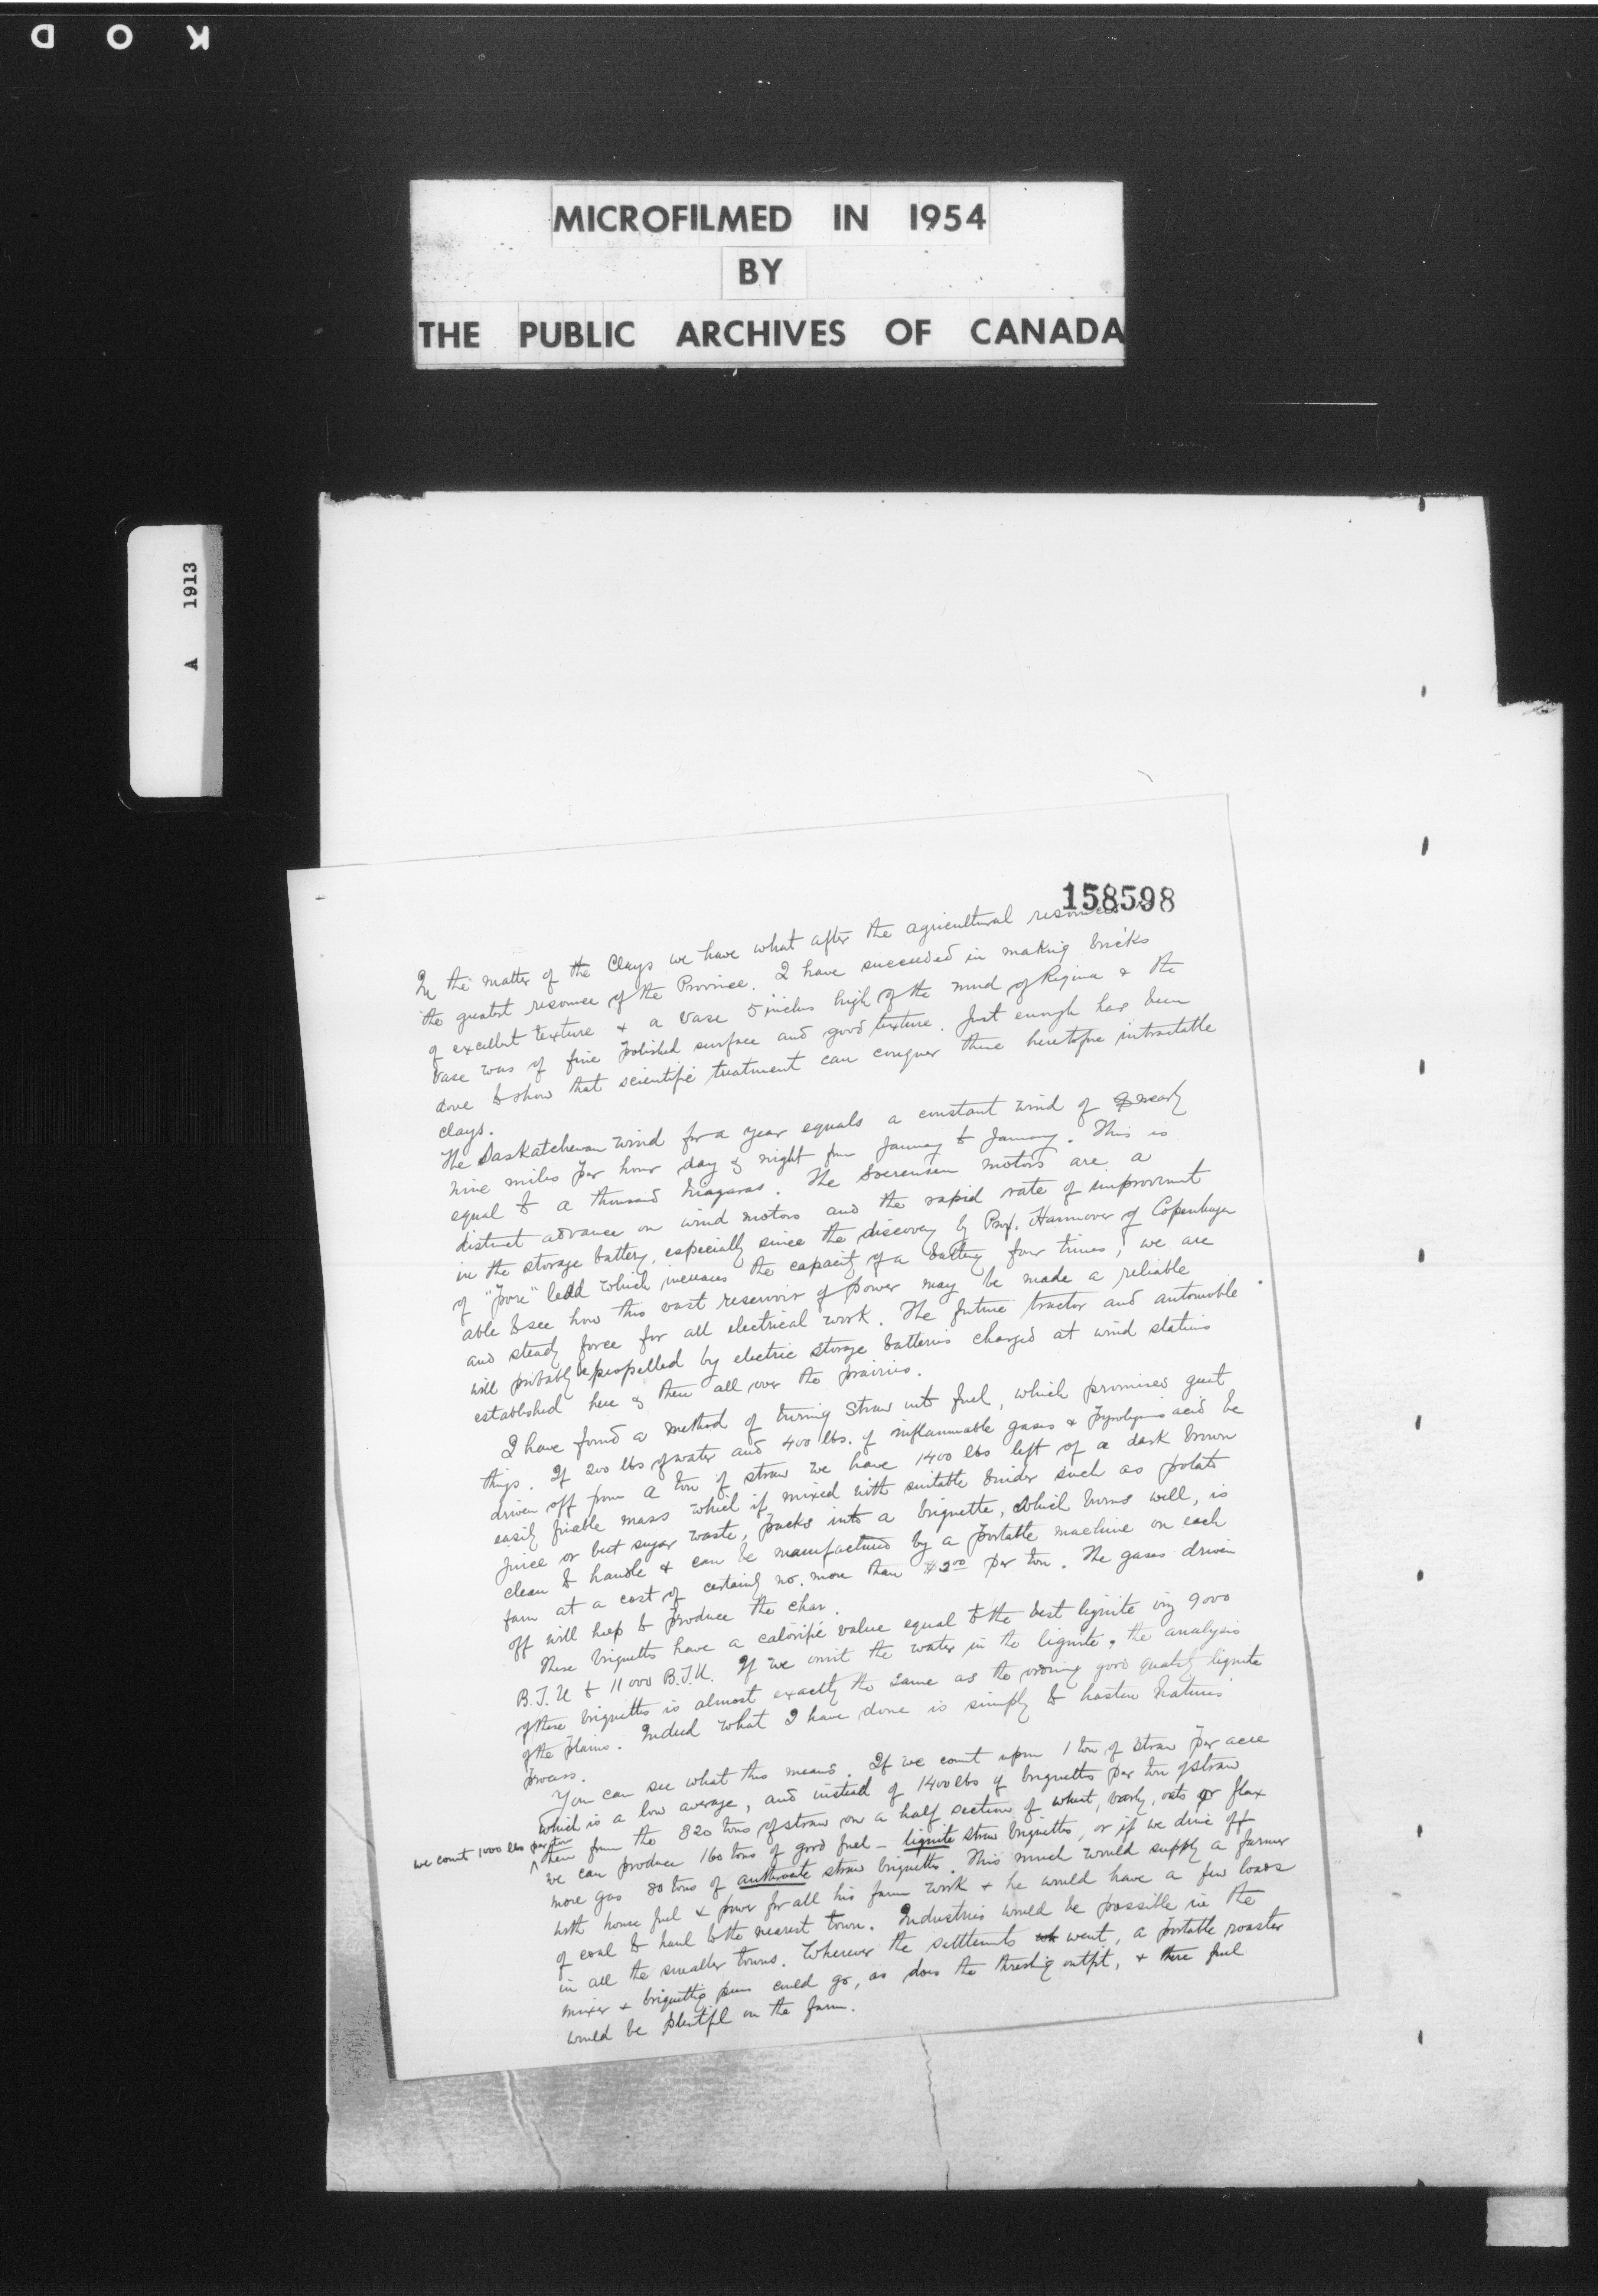 K O D
MICROFILMED IN 1954
BY
THE PUBLIC ARCHIVES OF CANADA
A 1913
158598
In the matter of the Clays we have what after the agricultural resources is
the greatest resource of the Province. I have succeeded in making bricks
of excellent texture & a vase 5 inches high of the mud of Regina & the
vase was of fine polished surface and good texture. Just enough has been
done to show that scientific treatment can conquer these heretofore intractable
clays.
The Saskatchewan wind for a year equals a constant wind of nearly
nine miles per hour day & night from January to January. This is
equal to a thousand Niagaras. The Soerensen motors are a
distinct advance on wind motors and the rapid rate of improvement
in the storage battery, especially since the discovery by Prof. Hannover of Copenhagen
of "pore" lead which increases the capacity of a battery four times, we are
able to see how this vast reservoir of power may be made a reliable
and steady force for all electrical work. The future tractor and automobile
will probably be propelled by electric storage batteries charged at wind stations
established here & there all over the prairies.
I have found a method of turning straw into fuel, which promises great
things. If 200 lbs of water and 400 lbs. of inflammable gases & pyroligneous acid be
driven off from a ton of straw we have 1400 lbs left of a dark brown
easily friable mass which if mixed with suitable binder such as potato
juice or beet sugar waste, packs into a briquette, which burns well, is
clean to handle & can be manufactured by a portable machine on each
farm at a cost of certainly no more than $2.00 per ton. The gases driven
off will help to produce the char.
These briquettes have a calorific value equal to the best lignite viz 9000
B.T.U to 11000 B.T.U. If we omit the water in the lignite, the analysis
of these briquettes is almost exactly the same as the ordinary good quality lignite
of the plains. Indeed what I have done is simply to hasten Nature's
process.
You can see what this means. If we count upon 1 ton of straw per acre
which is a low average, and instead of 1400 lbs of briquettes per ton of straw
we count 1000 lbs per ton
then from the 320 tons of straw on a half section of wheat, barley, oats or flax
we can produce 160 tons of good fuel - lignite straw briquettes, or if we drive off
more gas 80 tons of anthracite straw briquettes. This much would supply a farmer
with house fuel & power for all his farm work & he would have a few loads
of coal to haul to the nearest town. Industries would be possible in the
in all the smaller towns. Wherever the settlements went, a portable roaster
mixer & briquetting press could go, as does the threshing outfit, & there fuel
would be plentiful on the farm.